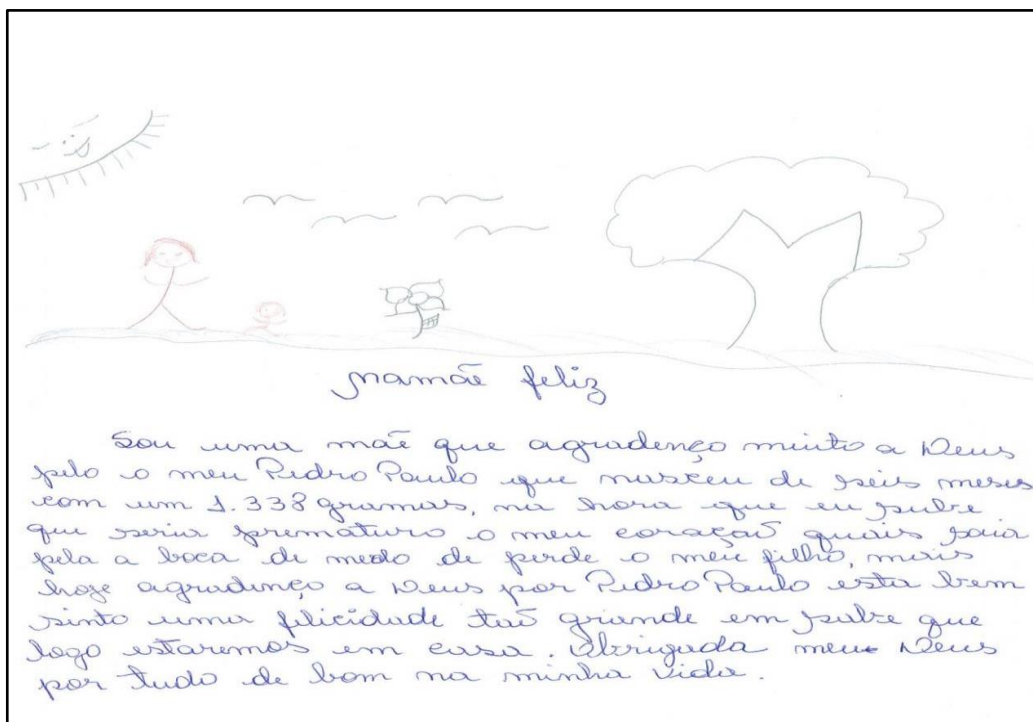 Mamãe feliz
Sou uma mãe que agradenço muito a Deus
pelo o meu Pedro Paulo que nasceu de seis meses
com um 1.338 gramas, na hora que eu sube
que seria prematuro o meu coração quais saia
pela a boca de medo de perde o meu filho, mais
hoze agradenço a Deus por Pedro Paulo esta bem
sinto uma felicidade taõ grande em sube que
logo estaremos em casa. Obrigada meu Deus
por tudo de bom na minha vida.